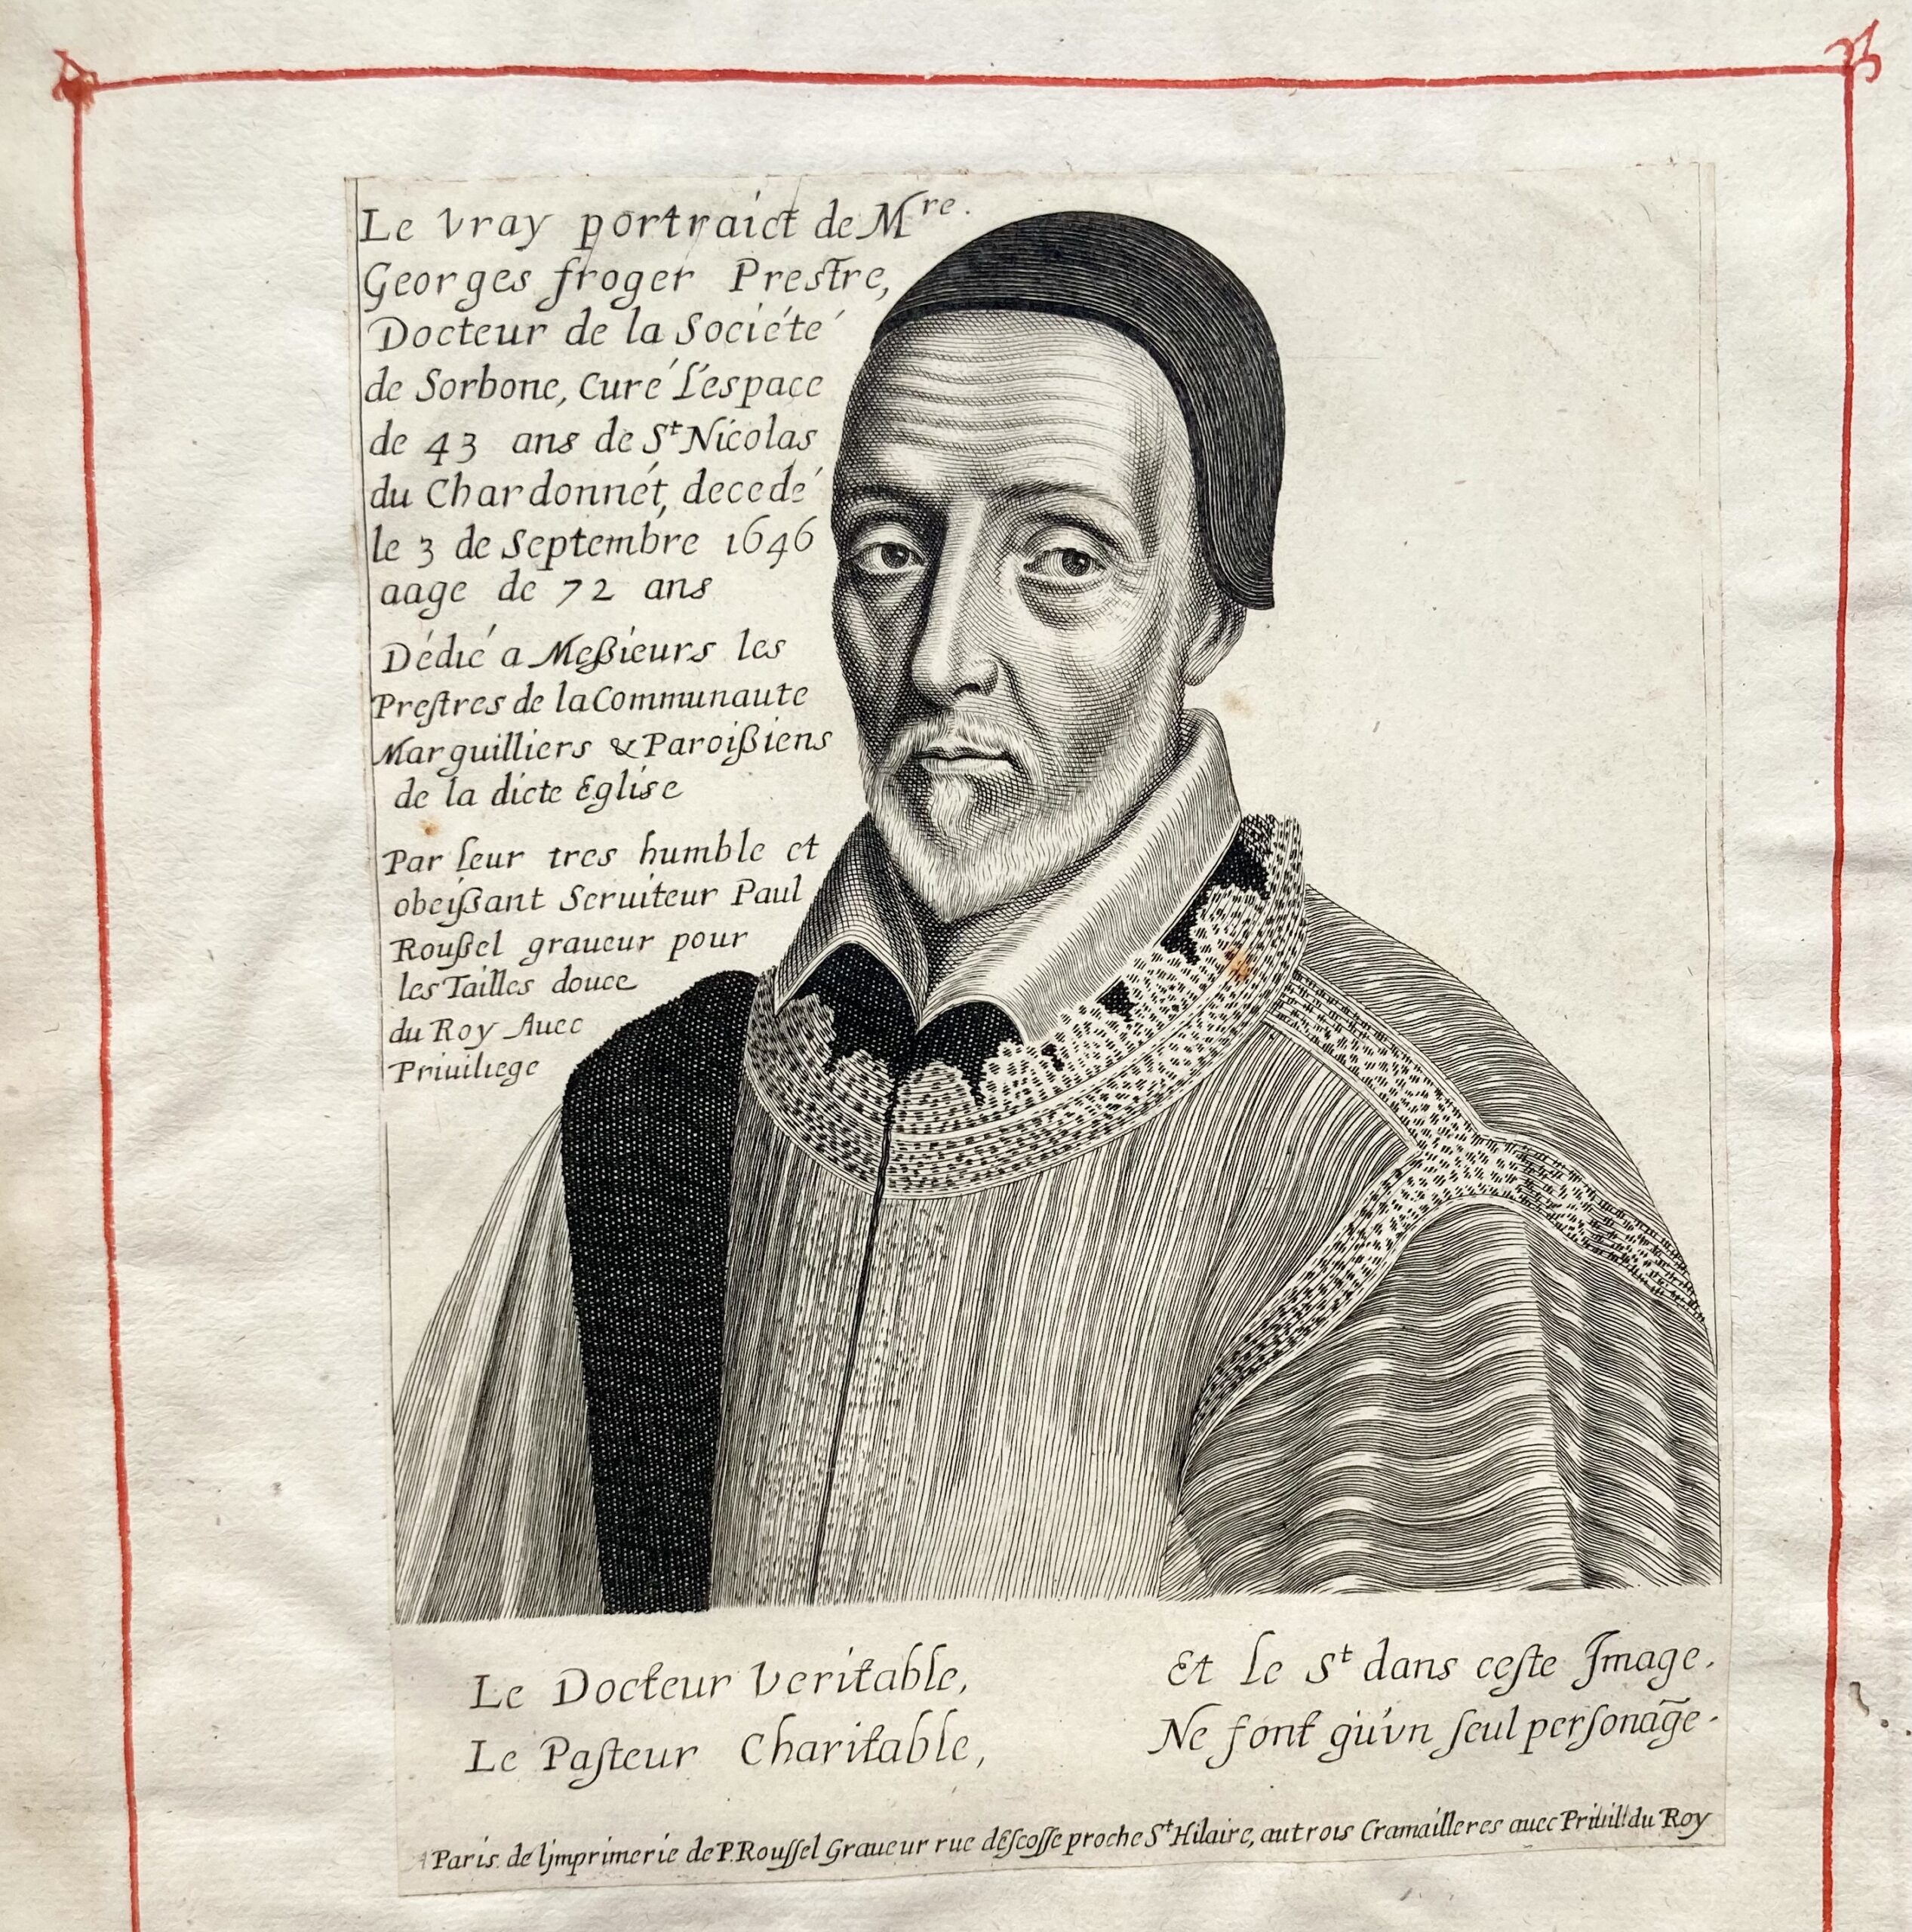 Le Vray portraict de Mre.
Georges froger Prestre,
Docteur de la Societé
de Sorbone, Curé l'espace
de 43 ans de St Nicolas
du Chardonnét, decedé
le 3 de Septembre 1646
aage de 72 ans
Dédié a Meßieurs les
Preſtres de la Communaute
Marguilliers & Paroißiens
de la dicte Eglise
Par leur tres humble et
obeißant Seruiteur Paul
Roußel graueur pour
les Tailles douce
du Roy Auec
Priuiliege
Le Docteur Veritable,
Le Paſteur Charitable,
Et le St dans ceſte Image.
Ne font qu'vn ſeul perſonage.
A Paris de l'jmprimerie de P. Rouſſel Graueur rue d'Eſcoſſe proche St Hilaire, au trois Cramailleres auec Priuil. du Roy